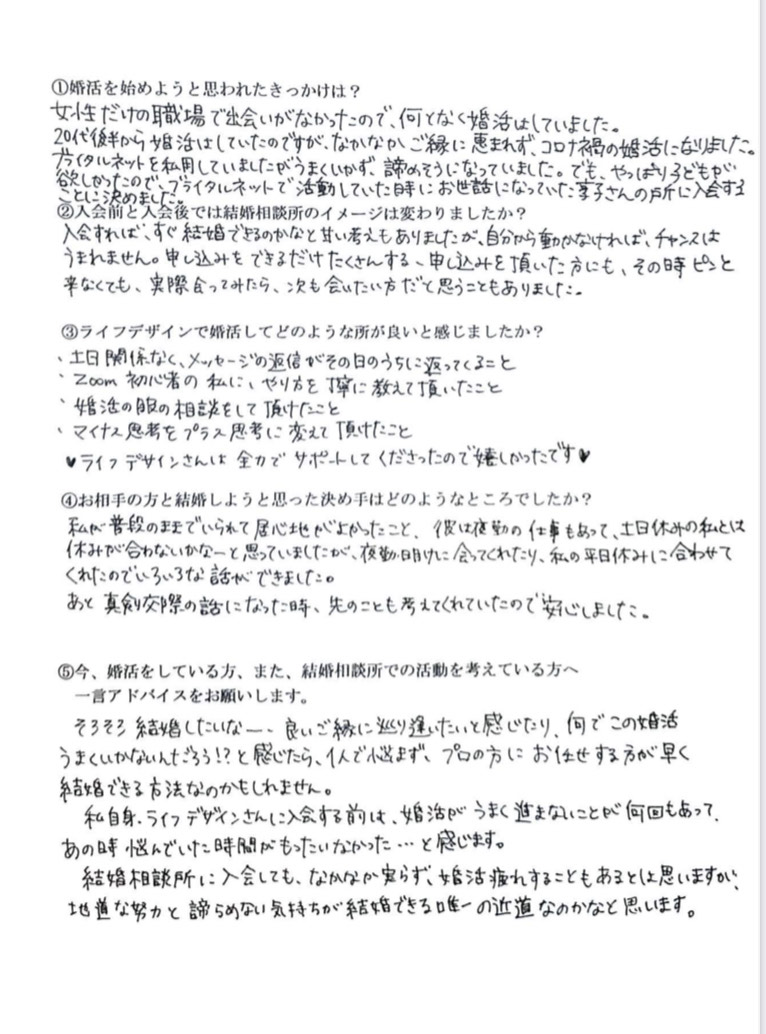 ①婚活を始めようと思われたきっかけは？
女性だけの職場で出会いがなかったので、何となく婚活はしていました。
20代後半から婚活はしていたのですが、なかなかご縁に恵まれず、コロナ禍の婚活になりました。
ブライダルネットを利用していましたがうまくいかず、諦めそうになっていました。でも、やっぱり子どもが
欲しかったので、ブライダルネットで活動していた時にお世話になっていた享子さんの所に入会する
ことに決めました。
②入会前と入会後では結婚相談所のイメージは変わりましたか？
入会すれば、すぐ結婚できるのかなと甘い考えもありましたが、自分から動かなければ、チャンスは
うまれません。申し込みをできるだけたくさんする、申し込みを頂いた方にも、その時ピンと
来なくても、実際会ってみたら、次も会いたい方だと思うこともありました。
③ライフデザインで婚活してどのような所が良いと感じましたか？
・土日関係なく、メッセージの返信がその日のうちに返ってくること
・Zoom初心者の私に、やり方を丁寧に教えて頂いたこと
・婚活の服の相談をして頂けたこと
・マイナス思考をプラス思考に変えて頂けたこと
♥ライフデザインさんは全力でサポートしてくださったので嬉しかったです♥
④お相手の方と結婚しようと思った決め手はどのようなところでしたか？
私が普段のままでいられて居心地がよかったこと、彼は夜勤の仕事もあって、土日休みの私とは
休みが合わないかなーと思っていましたが、夜勤明けに会ってくれたり、私の平日休みに合わせて
くれたのでいろいろな話ができました。
あと真剣交際の話になった時、先のことも考えてくれていたので安心しました。
⑤今、婚活をしている方、また、結婚相談所での活動を考えている方へ
一言アドバイスをお願いします。
そろそろ結婚したいなー、良いご縁に巡り逢いたいと感じたり、何でこの婚活
うまくいかないんだろう!?と感じたら、1人で悩まず、プロの方にお任せする方が早く
結婚できる方法なのかもしれません。
私自身、ライフデザインさんに入会する前は、婚活がうまく進まないことが何回もあって、
あの時悩んでいた時間がもったいなかった…と感じます。
結婚相談所に入会しても、なかなか実らず、婚活疲れすることもあるとは思いますが、
地道な努力と諦らめない気持ちが結婚できる唯一の近道なのかなと思います。